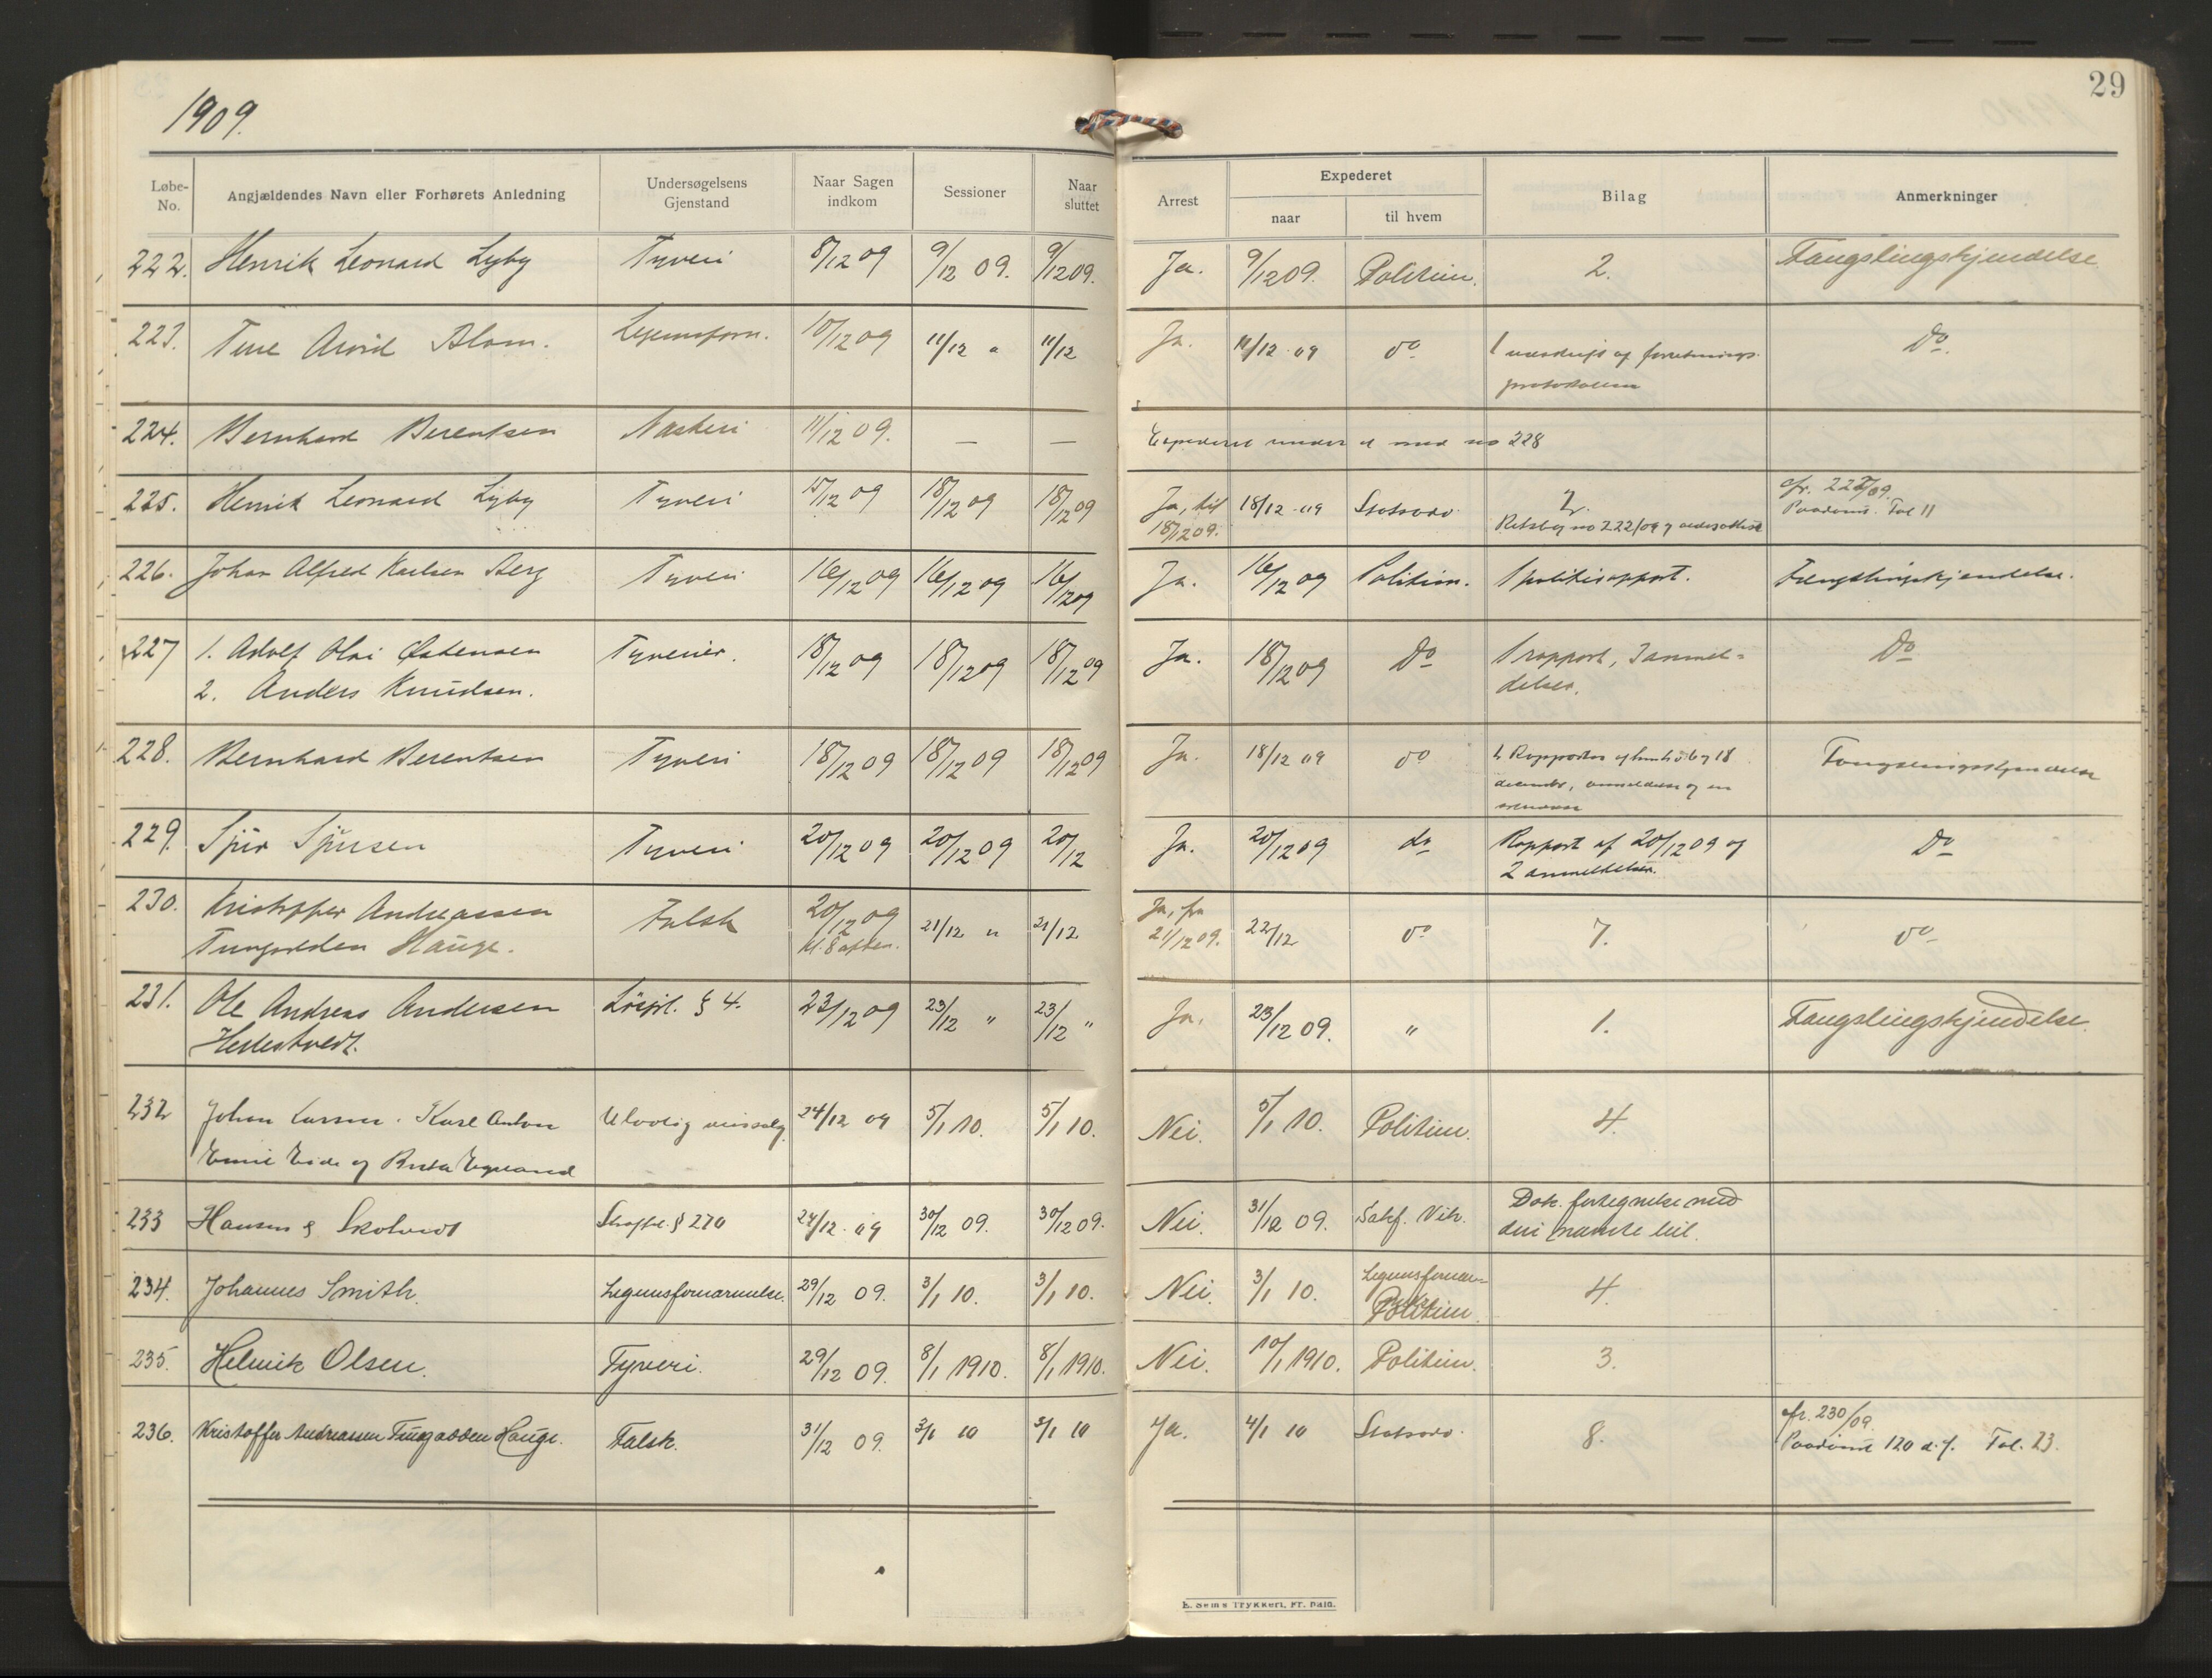 1909.
29
Løbe-No.
Angjældendes Navn eller Forhørets Anledning
Undersøgelsens Gjenstand
Naar Sagen indkom
Sessioner
Naar sluttet
Arrest
Expederet
naar
til hvem
Bilag
Anmerkninger
222. Henrik Leonard Lyby Tyveri 8/12 09 9/12 09. 9/12 09. Ja. 9/12 09. Politiet. 2. Fængslingskjendelse
223. Ture Arvid Blom. Legemsforn. 10/12 09 11/12 " 11/12 Ja. 11/12 09 do 1 udskrift af forretnings-
protokollen Do.
224. Bernhard Berentsen Naskeri 11/12 09. — — Expederet under et med no 228
225. Henrik Leonard Lyby Tyveri 15/12 09 18/12 09 18/12 09 Ja, til 18/12 09 Statsadv. 2. cfr. 222/09.
18/12 09. Retsbog no 222/09 Paadømt. Tal 11
226. Johan Alfred Karlsen Berg Tyveri 16/12 09 16/12 09 16/12 09 Ja. 16/12 09 Politiet. 1 politirapport. Fængslingskjendelse.
227 1. Adolf Olai Østensen Tyverier. 18/12 09 18/12 09 18/12 09 Ja. 18/12 09 Do 1 rapport, 3 anmel-
2. Anders Knudsen. delser. Do
228. Bernhard Berentsen Tyveri 18/12 09 18/12 09 18/12 09 Ja. 18/12 09 do 2 Rapporter af 18 Fængslingskjendelse
decembr, anmeldelse og en
229. Sjur Sjursen Tyveri 20/12 09 20/12 09 20/12 Ja. 20/12 09 do Rapport af 20/12 09 og Do
2 anmeldelser.
230. Kristoffer Andreassen Falsk 20/12 09 21/12 " 21/12 Ja, fra 22/12 do 7. do
Tungodden Hauge. kl. 8 aften. 21/12 09.
231. Ole Andreas Andersen Løsgl. § 4. 23/12 09 23/12 " 23/12 " Ja. 23/12 09. " 1. Fængslingskjendelse.
Hellestvedt.
232 Johan Larsen. Karl Anton Ulovlig vinsalg. 24/12 09 5/1 10. 5/1 10. Nei. 5/1 10. Politiet. 4.
Emil Eide og Berta Egeland
233 Hansen & Skotvedt Straffel. § 270 24/12 09 30/12 09. 30/12 09. Nei. 31/12 09. Sakf. Vik. Dok. fortegnelse med
dei nævnte bil.
234. Johannes Smith. Legemsfornærmelse. 29/12 09. 3/1 10. 3/1 10. Nei. 3/1 10. Legemsfornær-
Politiet. 4.
235. Helmik Olsen. Tyveri. 29/12 09. 8/1 1910. 8/1 1910. Nei. 10/1 1910. Politiet. 3.
236. Kristoffer Andreassen Tungodden Hauge. Falsk. 31/12 09. 3/1 10 3/1 10 Ja. 4/1 10 Statsadv. 8. cfr. 230/09.
Paadømt 120 d. f. Tal. 23.
E. Sems Trykkeri, Fr.hald.